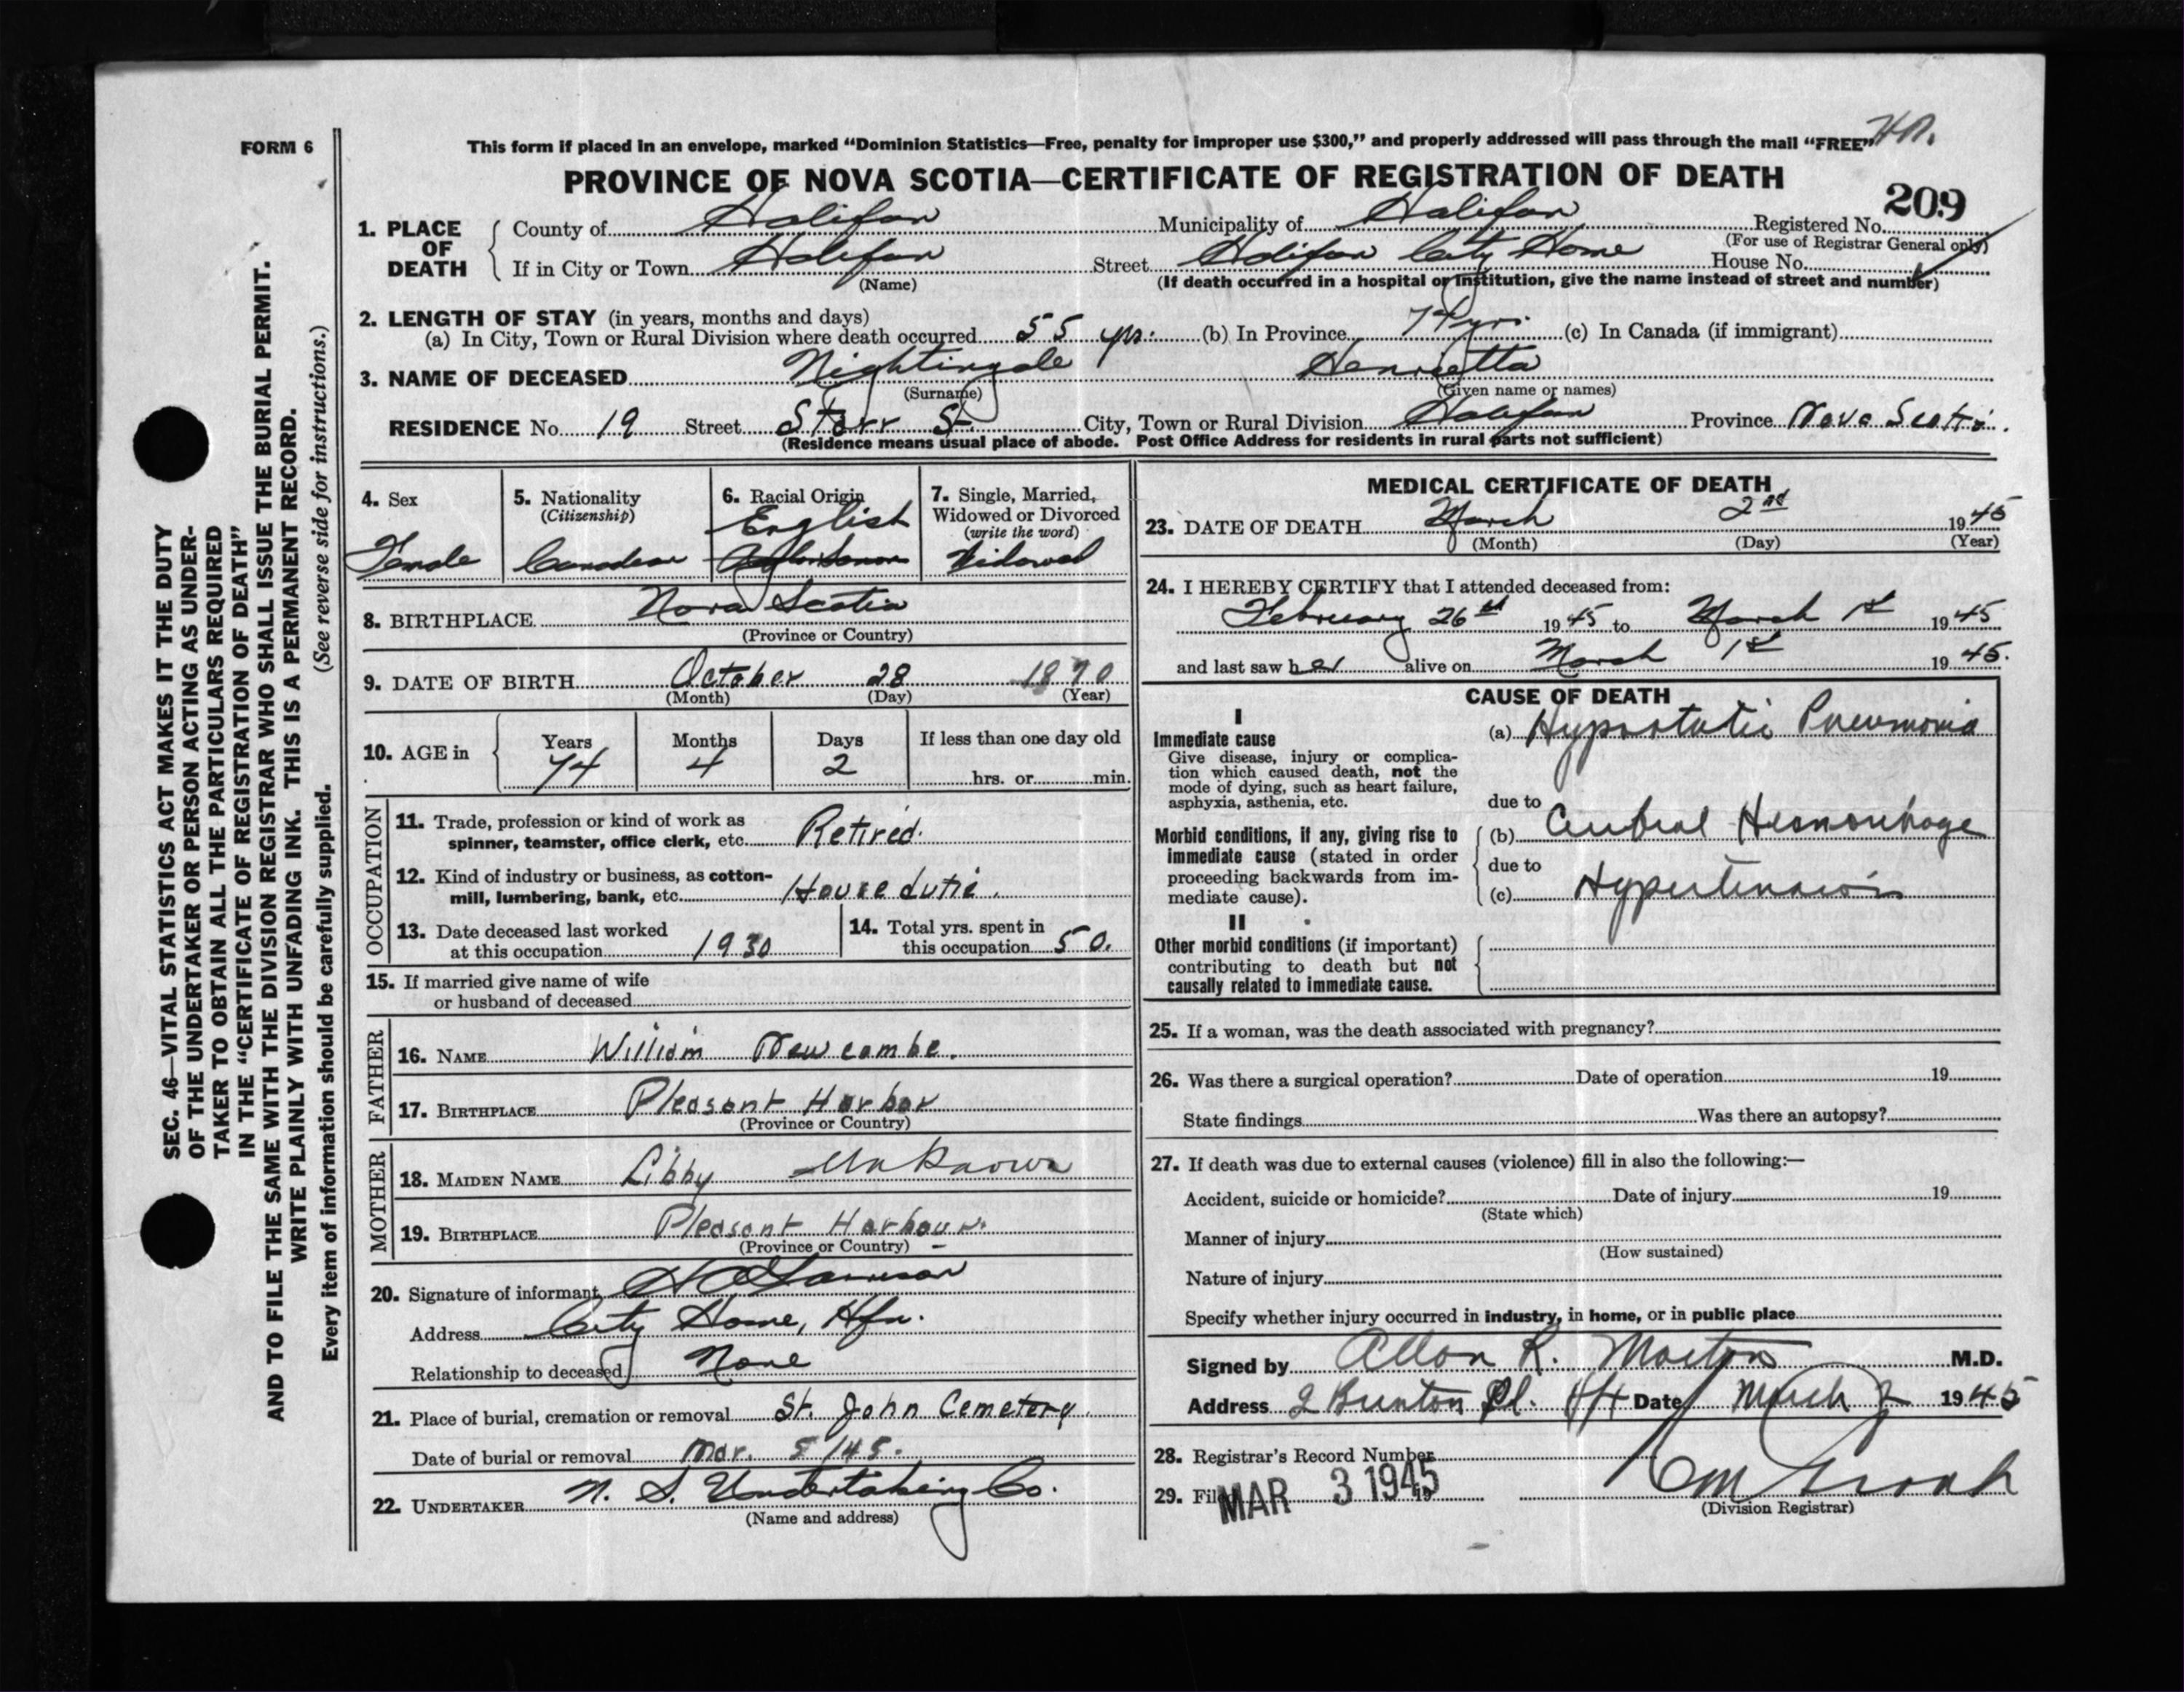 FORM 6
This form if placed in an envelope, marked “Dominion Statistics—Free, penalty for improper use $300,” and properly addressed will pass through the mail “FREE”
PROVINCE OF NOVA SCOTIA—CERTIFICATE OF REGISTRATION OF DEATH
209
1. PLACE OF DEATH
County of Halifax Municipality of Halifax Registered No.
(For use of Registrar General only)
If in City or Town Halifax Street Halifax City Home House No.
(Name) (If death occurred in a hospital or institution, give the name instead of street and number)
2. LENGTH OF STAY (in years, months and days)
(a) In City, Town or Rural Division where death occurred 55 yrs. (b) In Province 74 yrs. (c) In Canada (if immigrant)
3. NAME OF DECEASED Nightingale Henrietta
(Surname) (Given name or names)
RESIDENCE No. 19 Street Starr St City, Town or Rural Division Halifax Province Nova Scotia.
(Residence means usual place of abode. Post Office Address for residents in rural parts not sufficient)
4. Sex
Female
5. Nationality
(Citizenship)
Canadian
6. Racial Origin
English
7. Single, Married,
Widowed or Divorced
(write the word)
Widowed
8. BIRTHPLACE Nova Scotia
(Province or Country)
9. DATE OF BIRTH October 28 1870
(Month) (Day) (Year)
10. AGE in
Years Months Days If less than one day old
74 4 2 hrs. or min.
OCCUPATION
11. Trade, profession or kind of work as
spinner, teamster, office clerk, etc. Retired.
12. Kind of industry or business, as cotton-
mill, lumbering, bank, etc. House dutie.
13. Date deceased last worked
at this occupation 1930
14. Total yrs. spent in
this occupation 50.
15. If married give name of wife
or husband of deceased
FATHER
16. NAME William Newcambe.
17. BIRTHPLACE Pleasant Harbor
(Province or Country)
MOTHER
18. MAIDEN NAME Libby Unknown
19. BIRTHPLACE Pleasant Harbour.
(Province or Country)
20. Signature of informant
Address City Home, Hfx.
Relationship to deceased None
21. Place of burial, cremation or removal St. John Cemetery.
Date of burial or removal Mar. 5/45.
22. UNDERTAKER N. S. Undertaking Co.
(Name and address)
MEDICAL CERTIFICATE OF DEATH
23. DATE OF DEATH March 2nd 1945
(Month) (Day) (Year)
24. I HEREBY CERTIFY that I attended deceased from:
February 26th 1945 to March 1st 1945
and last saw her alive on March 1st 1945.
CAUSE OF DEATH
I
Immediate cause
Give disease, injury or complica-
tion which caused death, not the
mode of dying, such as heart failure,
asphyxia, asthenia, etc.
(a) Hypostatic Pneumonia
due to
Morbid conditions, if any, giving rise to
immediate cause (stated in order
proceeding backwards from im-
mediate cause).
(b) Cerebral Hemorrhage
due to
(c) Hypertension
II
Other morbid conditions (if important)
contributing to death but not
causally related to immediate cause.
25. If a woman, was the death associated with pregnancy?
26. Was there a surgical operation? Date of operation 19
State findings Was there an autopsy?
27. If death was due to external causes (violence) fill in also the following:—
Accident, suicide or homicide? Date of injury 19
(State which)
Manner of injury
(How sustained)
Nature of injury
Specify whether injury occurred in industry, in home, or in public place
Signed by Allan R. Morton M.D.
Address 2 Brunton Pl. Date March 2 1945
28. Registrar's Record Number
29. Filed MAR 3 1945
(Division Registrar)
SEC. 46—VITAL STATISTICS ACT MAKES IT THE DUTY
OF THE UNDERTAKER OR PERSON ACTING AS UNDER-
TAKER TO OBTAIN ALL THE PARTICULARS REQUIRED
IN THE “CERTIFICATE OF REGISTRATION OF DEATH”
AND TO FILE THE SAME WITH THE DIVISION REGISTRAR WHO SHALL ISSUE THE BURIAL PERMIT.
WRITE PLAINLY WITH UNFADING INK. THIS IS A PERMANENT RECORD.
(See reverse side for instructions.)
Every item of information should be carefully supplied.